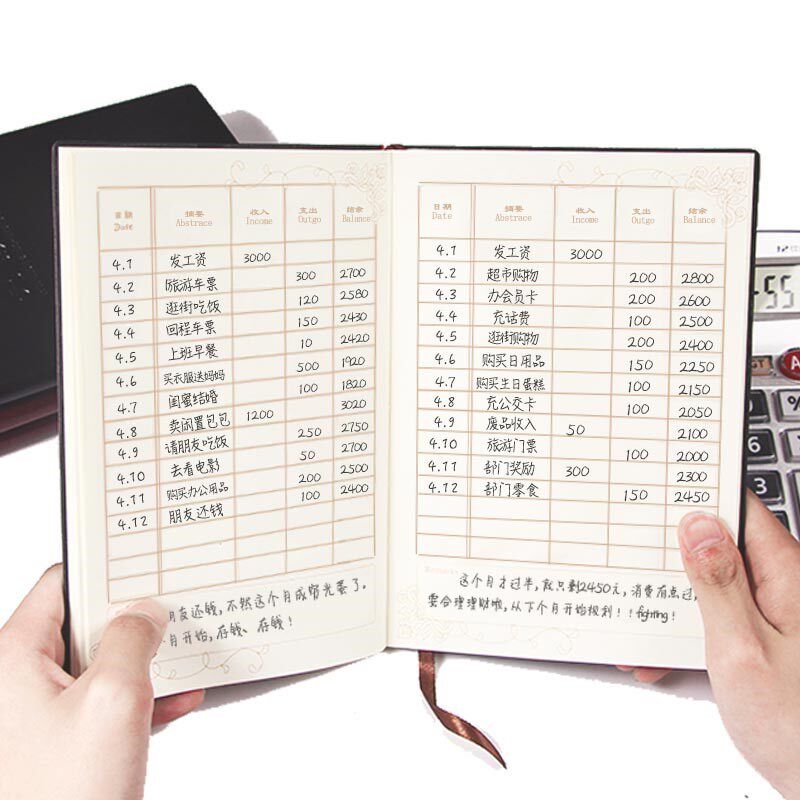 日期 摘要 收入 支出 结余
Date Abstrace Income Outgo Balance
4.1 发工资 3000
4.2 旅游车票 300 2700
4.3 逛街吃饭 120 2580
4.4 回程车票 150 2430
4.5 上班早餐 10 2420
4.6 买衣服送妈妈 500 1920
4.7 闺蜜结婚 100 1820
4.8 卖闲置包包 1200 3020
4.9 请朋友吃饭 250 2750
4.10 去看电影 50 2700
4.11 购买办公用品 200 2500
4.12 朋友还钱 100 2400
友还钱,不然这个月成穷光蛋了。
月开始,存钱、存钱!
日期 摘要 收入 支出 结余
Date Abstrace Income Outgo Balance
4.1 发工资 3000
4.2 超市购物 200 2800
4.3 办会员卡 200 2600
4.4 充话费 100 2500
4.5 逛街购物 200 2400
4.6 购买日用品 150 2250
4.7 购买生日蛋糕 100 2150
4.8 充公交卡 100 2050
4.9 废品收入 50 2100
4.10 旅游门票 100 2000
4.11 部门奖励 300 2300
4.12 部门零食 150 2450
这个月才过半,就只剩2450元,消费有点过,
要合理理财啦,从下个月开始权利!!fighting!
55